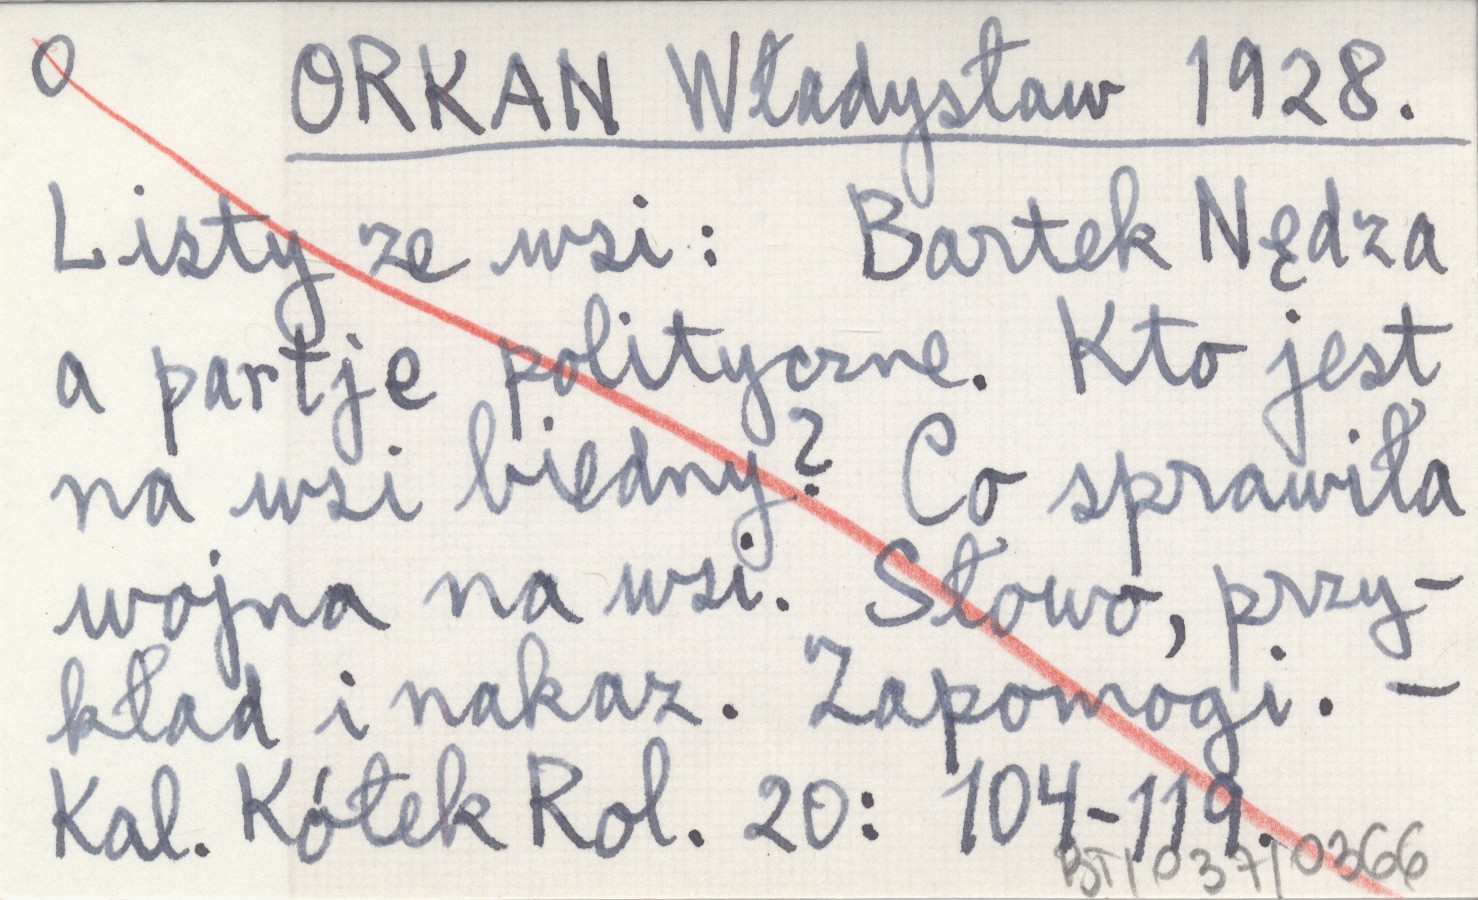 O ORKAN Władysław 1928.
Listy ze wsi: Bartek Nędza
a partje polityczne. Kto jest
na wsi biedny? Co sprawiła
wojna na wsi. Słowo, przy-
kład i nakaz. Zapomogi. –
Kal. Kółek Rol. 20: 104-119.
BT/037/0366